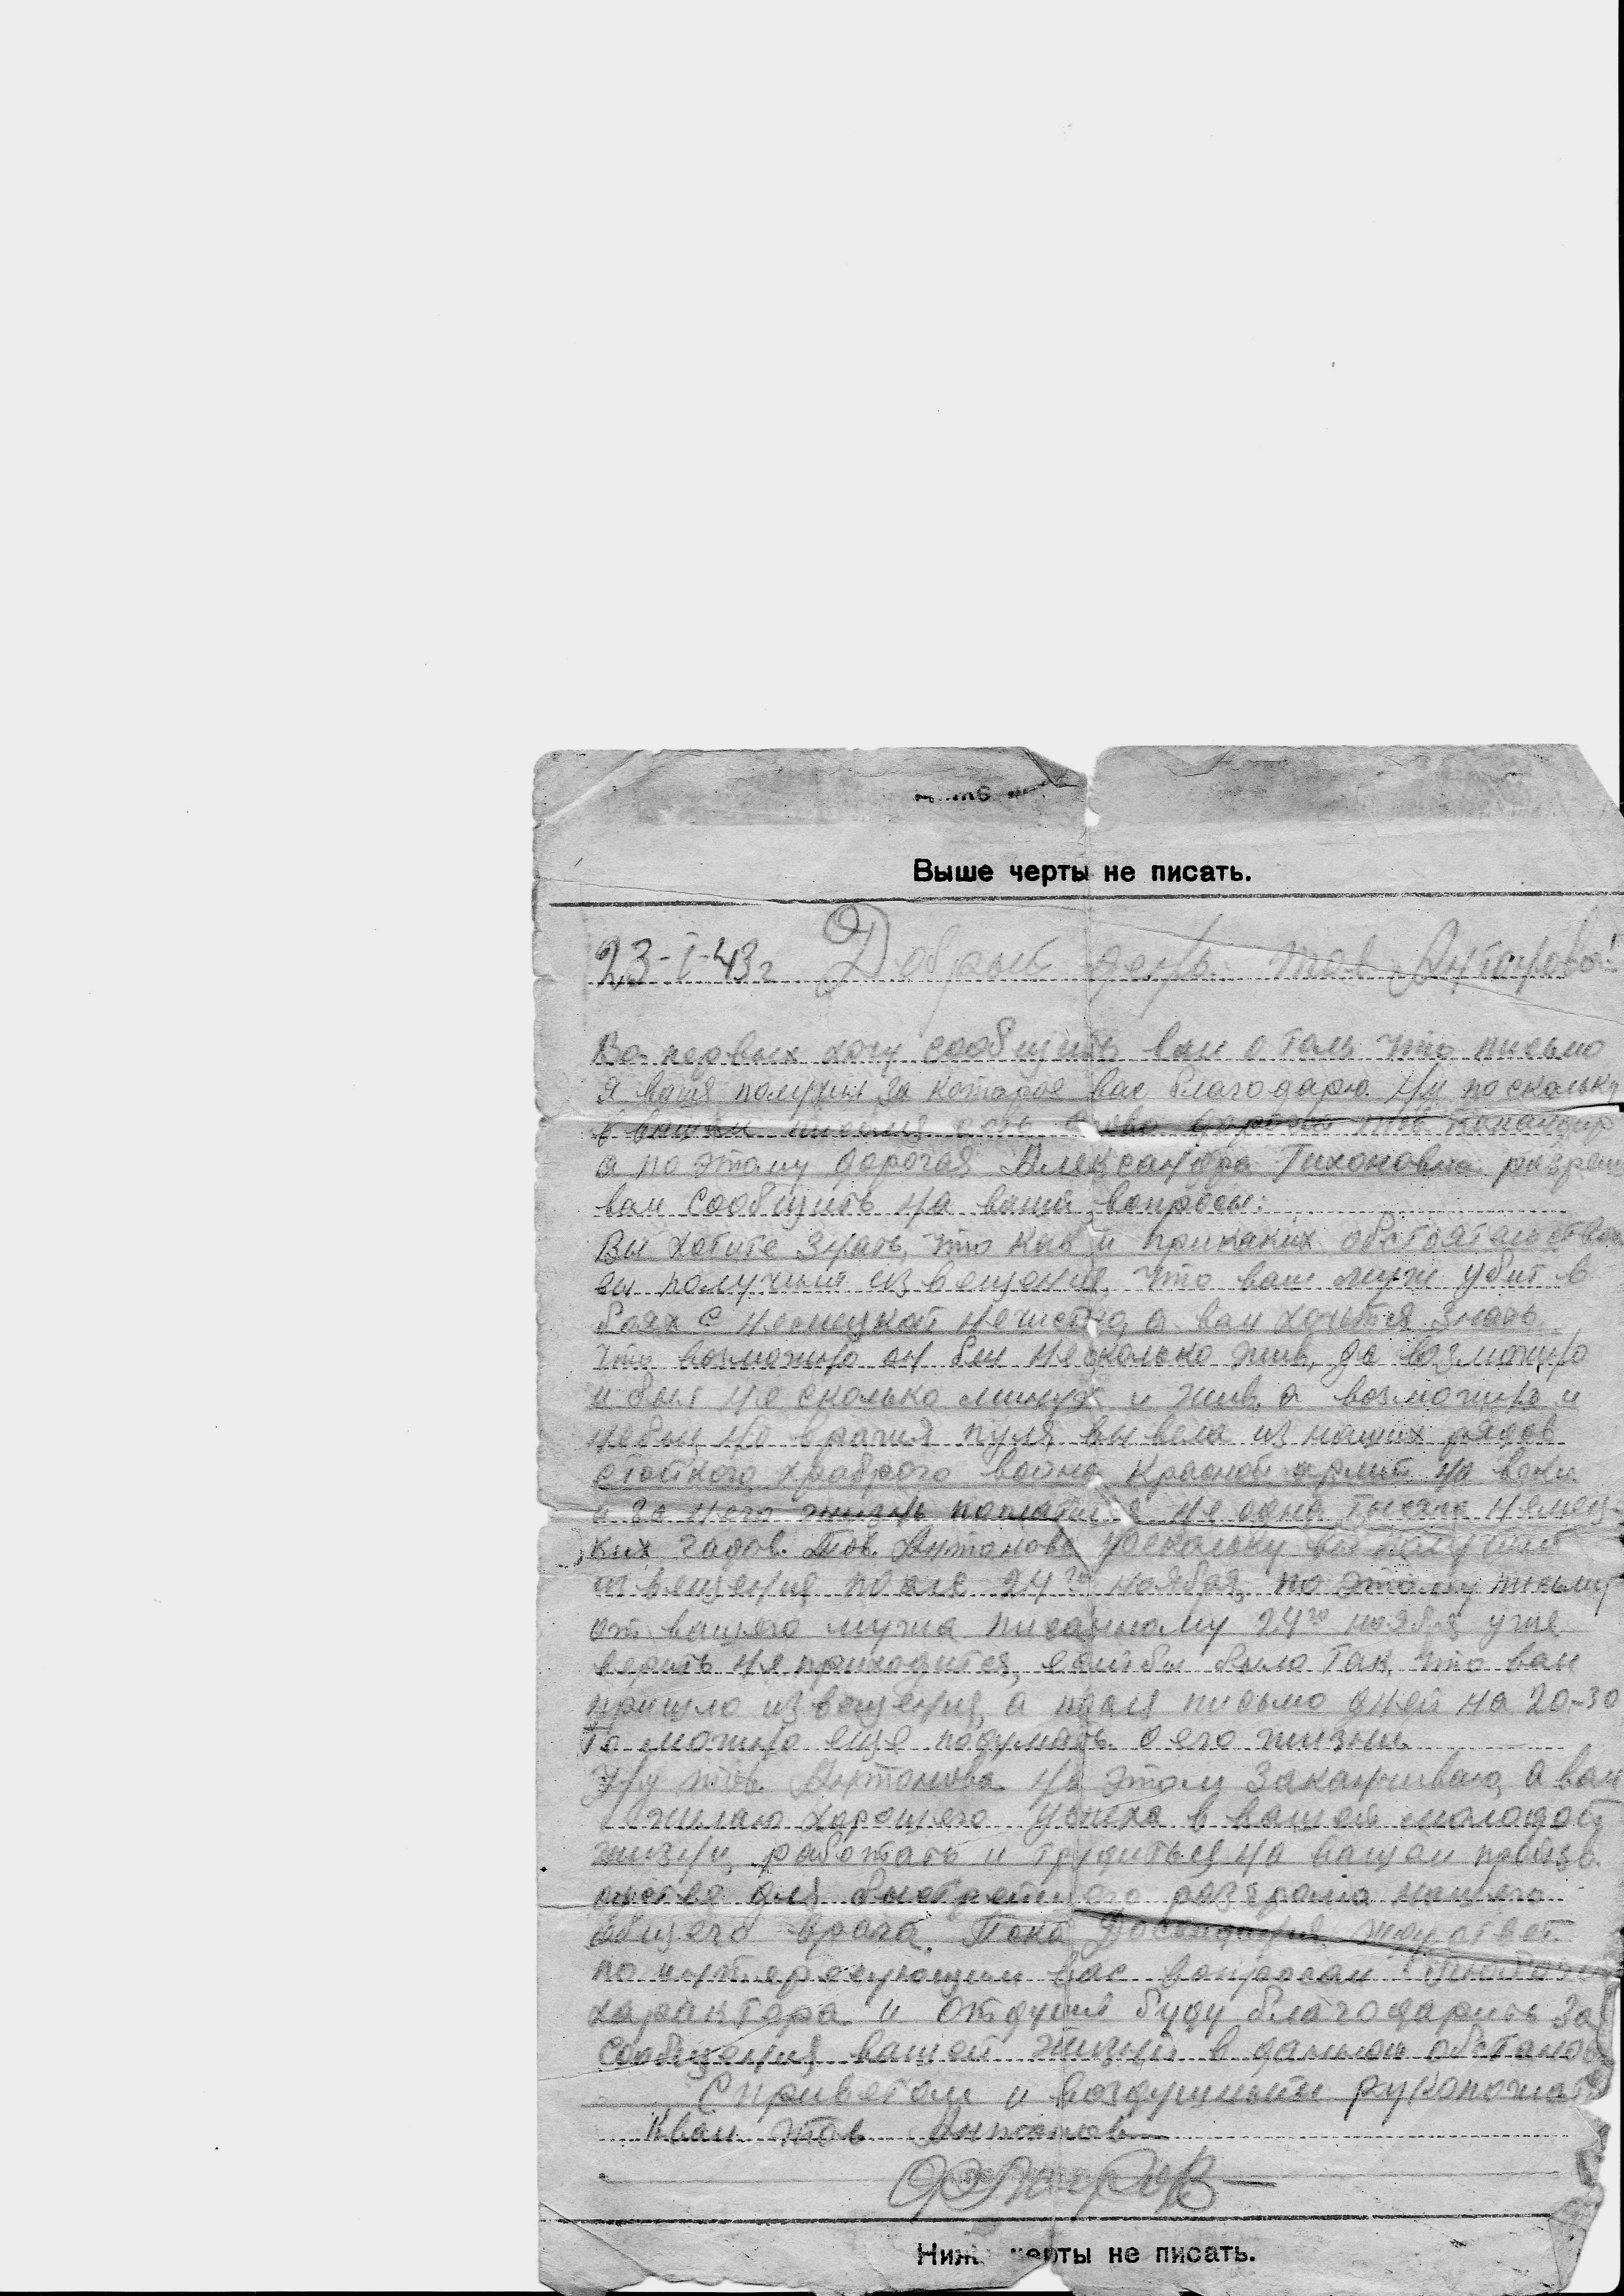 Выше черты не писать.
23-I-43г Добрый день тов Антонова!
Во-первых хочу сообщить вам о том что письмо
я ваше получил за которое вас благодарю. Ну поскольку
в вашем письме дорогой тов командир
а по этому дорогая Александра Тихоновна
вам сообщить на ваши вопросы:
Вы хотите знать, что как и при каких обстоятельствах
вы получили извещения, что ваш муж убит в
боях с немецкой а вам хочется знать,
что возможно он был несколько жив, да возможно
и был несколько минут и жив, а возможно и
небыл, но врагия пуля вывела из наших рядов
стойкого храброго воина Красной армии на веки
и за него жизнь не одна тысяча немец-
ких гадов. Тов. Антонова поскольку вы получили
извещения после 24го ноября, по этому письму
от вашего мужа писанному 24го ноября уже
верить не приходится, если бы было так, что вам
пришло извещения, а после письмо дней на 20-30
То можно еще подумать о его жизни.
Ну тов. Антонова на этом заканчиваю, а вам
желаю хорошего успеха в вашей молодой
жизни, работать и трудиться на вашем произв.
для быстрейшего разгрома нашего
общего врага. Пока Досвидания жду ответ
по интересующим вас вопросам
характера и отдуши буду благодарить за
сообщения вашей жизни в данной
С приветом и воздушным
К вам тов
Ниже черты не писать.